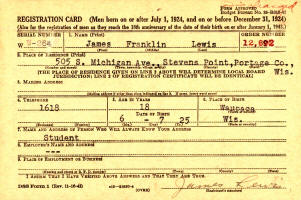 REGISTRATION CARD (Men born on or after July 1, 1924, and on or before December 31, 1924)
(Also for the registration of men as they reach the 18th anniversary of the date of their birth on or after January 1,
SERIAL NUMBER 1. NAME (Print) ORDER NUMBER
W-284 James Franklin Lewis 12,892
2. PLACE OF RESIDENCE (Print)
505 S. Michigan Ave., Stevens Point, Portage Co.,
Wis.
[THE PLACE OF RESIDENCE GIVEN ON LINE 2 ABOVE WILL DETERMINE LOCAL BOARD
JURISDICTION; LINE 2 OF REGISTRATION CERTIFICATE WILL BE IDENTICAL]
4. TELEPHONE 5. AGE IN YEARS 6. PLACE OF BIRTH
1618 18 Waupaca
DATE OF BIRTH
6 - 7 25 Wis.
7. NAME AND ADDRESS OF PERSON WHO WILL ALWAYS KNOW YOUR ADDRESS
Student
8. EMPLOYER'S NAME AND ADDRESS
---
9. PLACE OF EMPLOYMENT OR BUSINESS
I AFFIRM THAT I HAVE VERIFIED ABOVE ANSWERS AND THAT THEY ARE TRUE.
DSS FORM 1 (Rev. 11-16-42) (OVER) James Lewis